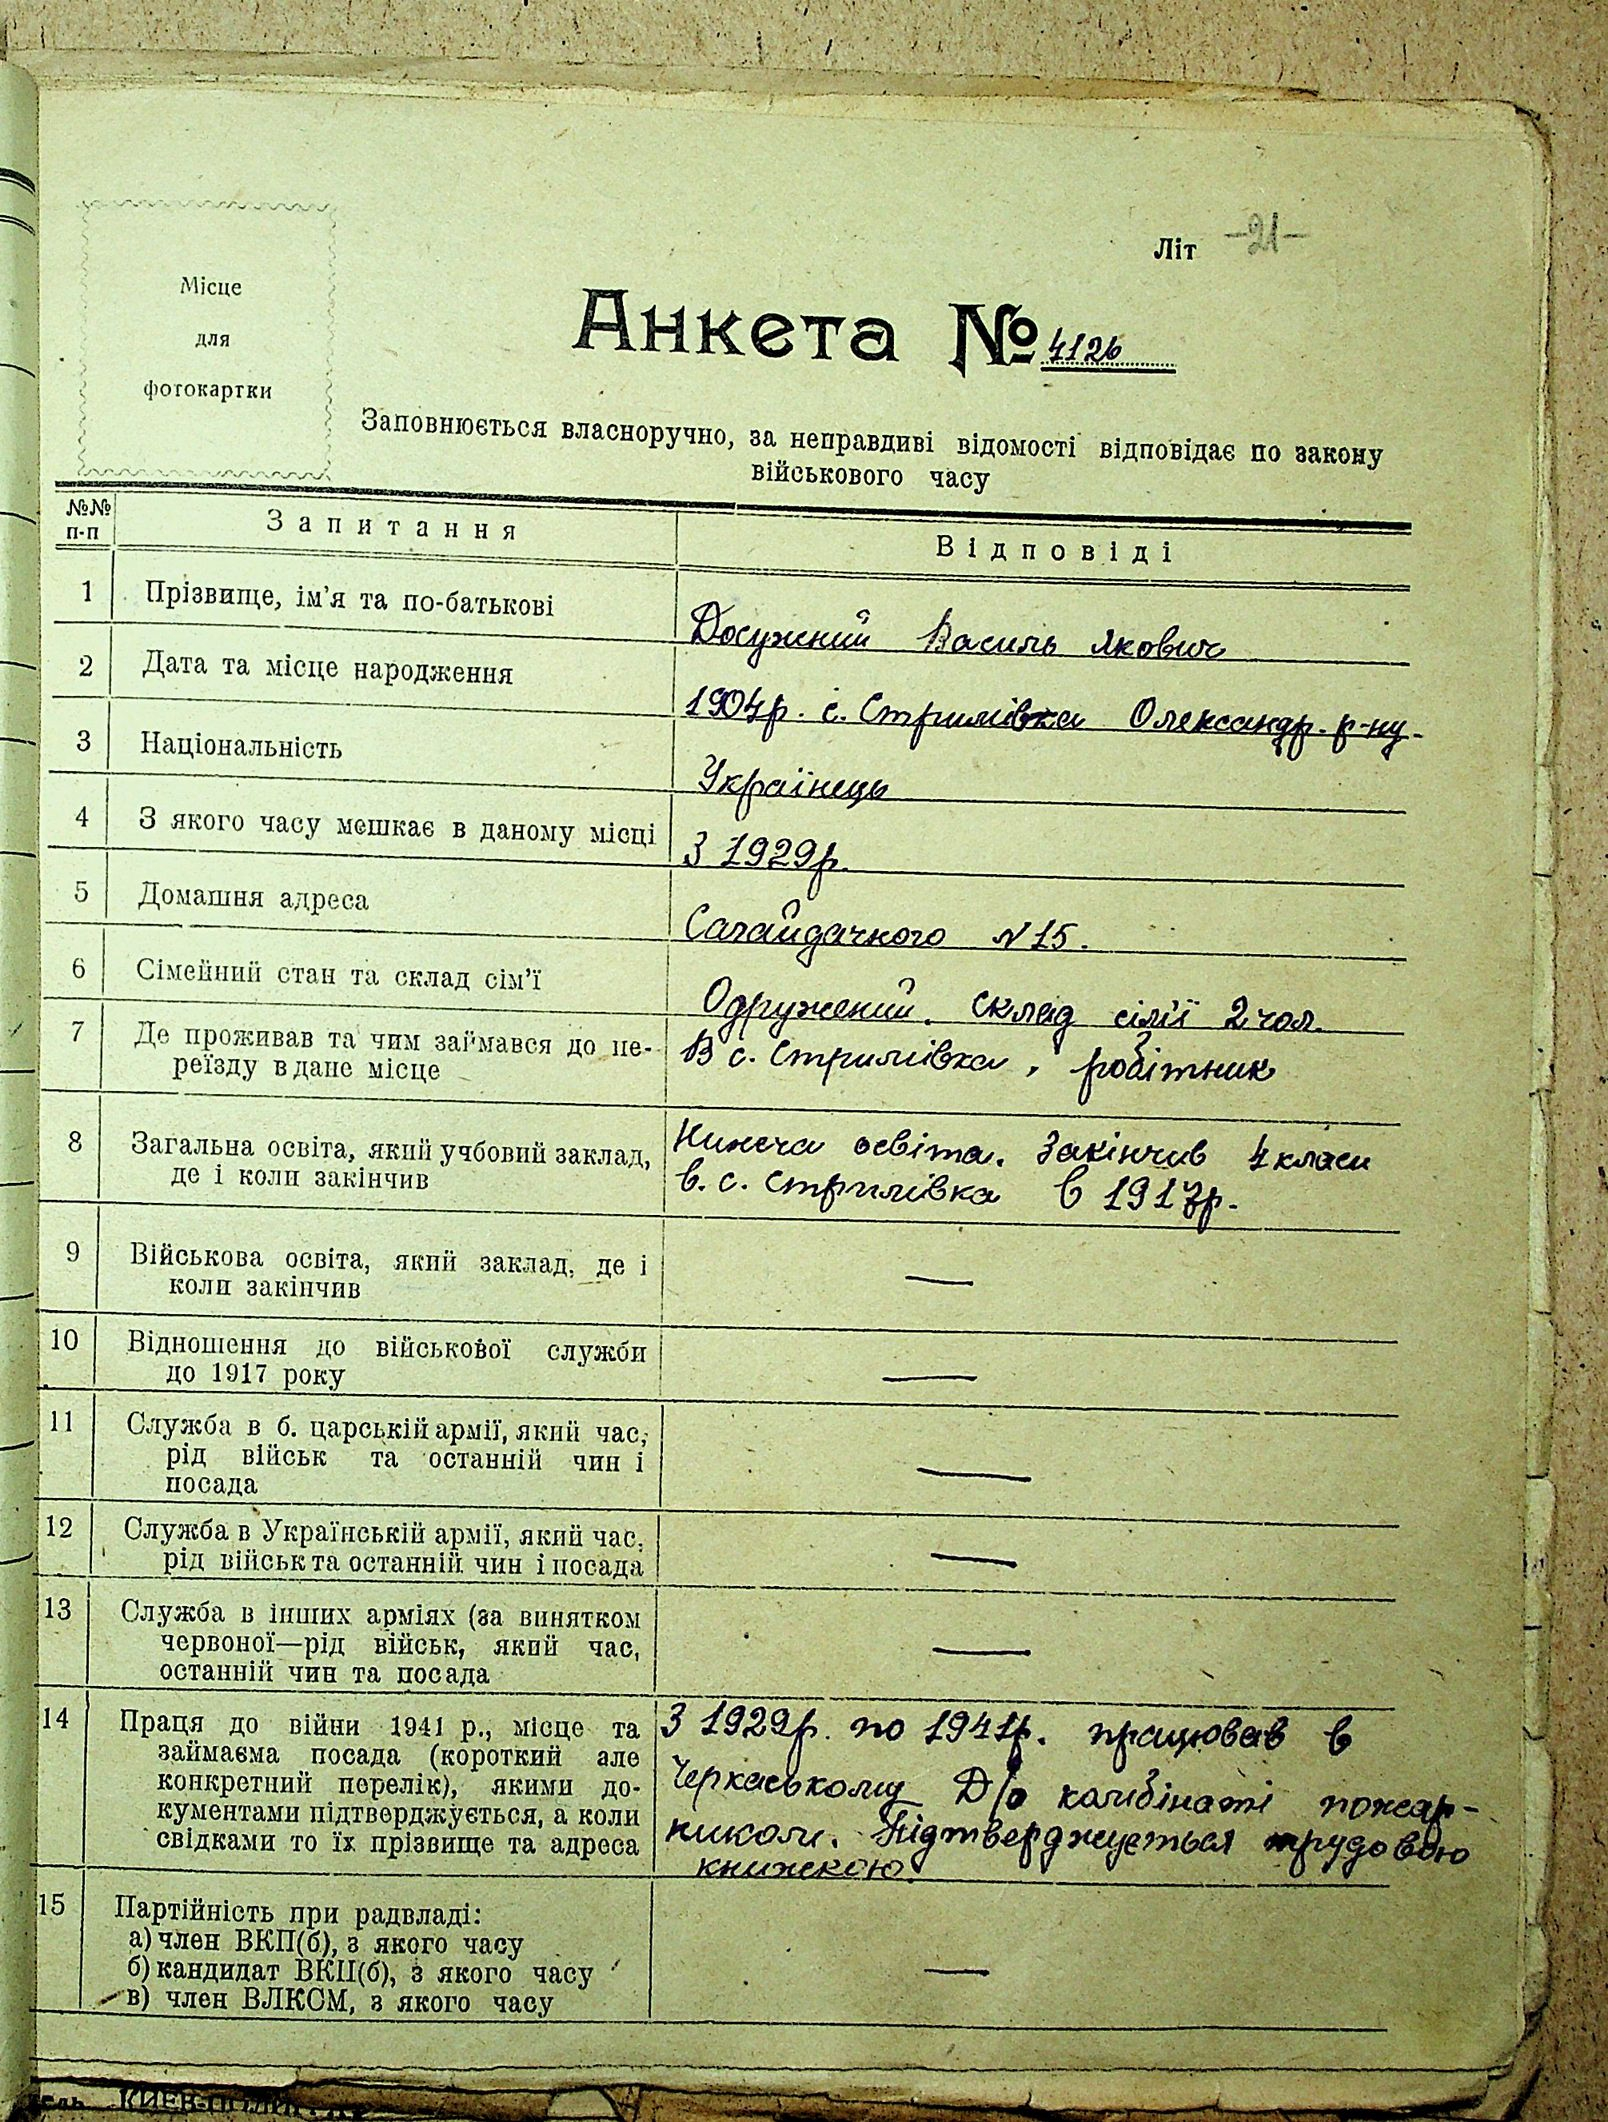 Літ -21-
Місце
для
фотокартки
Анкета № 4126
Заповнюється власноручно, за неправдиві відомості відповідає по закону
військового часу
№№
п-п
Запитання
Відповіді
1 Прізвище, ім'я та по-батькові
Досужний Василь Якович
2 Дата та місце народження
1904р. с. Стримівка Олександр. р-ну.
3 Національність
Українець
4 З якого часу мешкає в даному місці
З 1929р.
5 Домашня адреса
Сагайдачного №15.
6 Сімейний стан та склад сім'ї
Одружений. склад сім'ї 2 чол.
7 Де проживав та чим займався до пе-
реїзду в дане місце
В с. Стримівка, робітник
8 Загальна освіта, який учбовий заклад,
де і коли закінчив
Нижча освіта. Закінчив 4 класи
в. с. Стримівка в 1917р.
9 Військова освіта, який заклад, де і
коли закінчив
—
10 Відношення до військової служби
до 1917 року
—
11 Служба в б. царській армії, який час,
рід військ та останній чин і
посада
—
12 Служба в Українській армії, який час,
рід військ та останній чин і посада
—
13 Служба в інших арміях (за винятком
червоної—рід військ, який час,
останній чин та посада
—
14 Праця до війни 1941 р., місце та
займаєма посада (короткий але
конкретний перелік), якими до-
кументами підтверджується, а коли
свідками то їх прізвище та адреса
З 1929р. по 1941р. працював в
Черкаському Д/о комбінаті пожар-
ником. Підтверджується трудовою
книжкою.
15 Партійність при радвладі:
а) член ВКП(б), з якого часу
б) кандидат ВКП(б), з якого часу
в) член ВЛКСМ, з якого часу
—